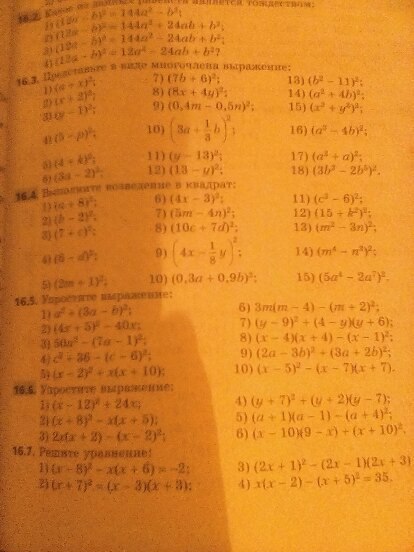 16.2. Какое из данных равенств является тождеством:
1) (12a − b)² = 144a² − b²;
2) (12a − b)² = 144a² + 24ab + b²;
3) (12a − b)² = 144a² − 24ab + b²;
4) (12a − b)² = 12a² − 24ab + b²?
16.3. Представьте в виде многочлена выражение:
1) (a + x)²; 7) (7b + 6)²; 13) (b² − 11)²;
8) (8x + 4y)²; 14) (a² + 4b)²;
3) (y − 1)²; 9) (0,4m − 0,5n)²; 15) (x² + y²)²;
4) (5 − p)²; 10) (3a + 1/3 b)²; 16) (a² − 4b)²;
5) (4 + k)²; 11) (y − 13)²; 17) (a² + a)²;
6) (3a − 2)²; 12) (13 − y)²; 18) (3b² − 2b⁵)².
16.4. Выполните возведение в квадрат:
1) (a + 8)²; 6) (4x − 3)²; 11) (c² − 6)²;
2) (b − 2)²; 7) (5m − 4n)²; 12) (15 + k²)²;
3) (7 + c)²; 8) (10c + 7d)²; 13) (m² − 3n)²;
4) (6 − d)²; 9) (4x − 1/8 y)²; 14) (m⁴ − n³)²;
5) (2m + 1)²; 10) (0,3a + 0,9b)²; 15) (5a⁴ − 2a⁷)².
16.5. Упростите выражение:
1) a² + (3a − b)²; 6) 3m(m − 4) − (m + 2)²;
2) (4x + 5)² − 40x; 7) (y − 9)² + (4 − y)(y + 6);
3) 50a² − (7a − 1)²; 8) (x − 4)(x + 4) − (x − 1)²;
4) c² + 36 − (c − 6)²; 9) (2a − 3b)² + (3a + 2b)²;
5) (x − 2)² + x(x + 10); 10) (x − 5)² − (x − 7)(x + 7).
16.6. Упростите выражение:
1) (x − 12)² + 24x; 4) (y + 7)² + (y + 2)(y − 7);
2) (x + 8)² − x(x + 5); 5) (a + 1)(a − 1) − (a + 4)²;
3) 2x(x + 2) − (x − 2)²; 6) (x − 10)(9 − x) + (x + 10)².
16.7. Решите уравнение:
1) (x − 8)² − x(x + 6) = −2; 3) (2x + 1)² − (2x − 1)(2x + 3)
2) (x + 7)² = (x − 3)(x + 3); 4) x(x − 2) − (x + 5)² = 35.